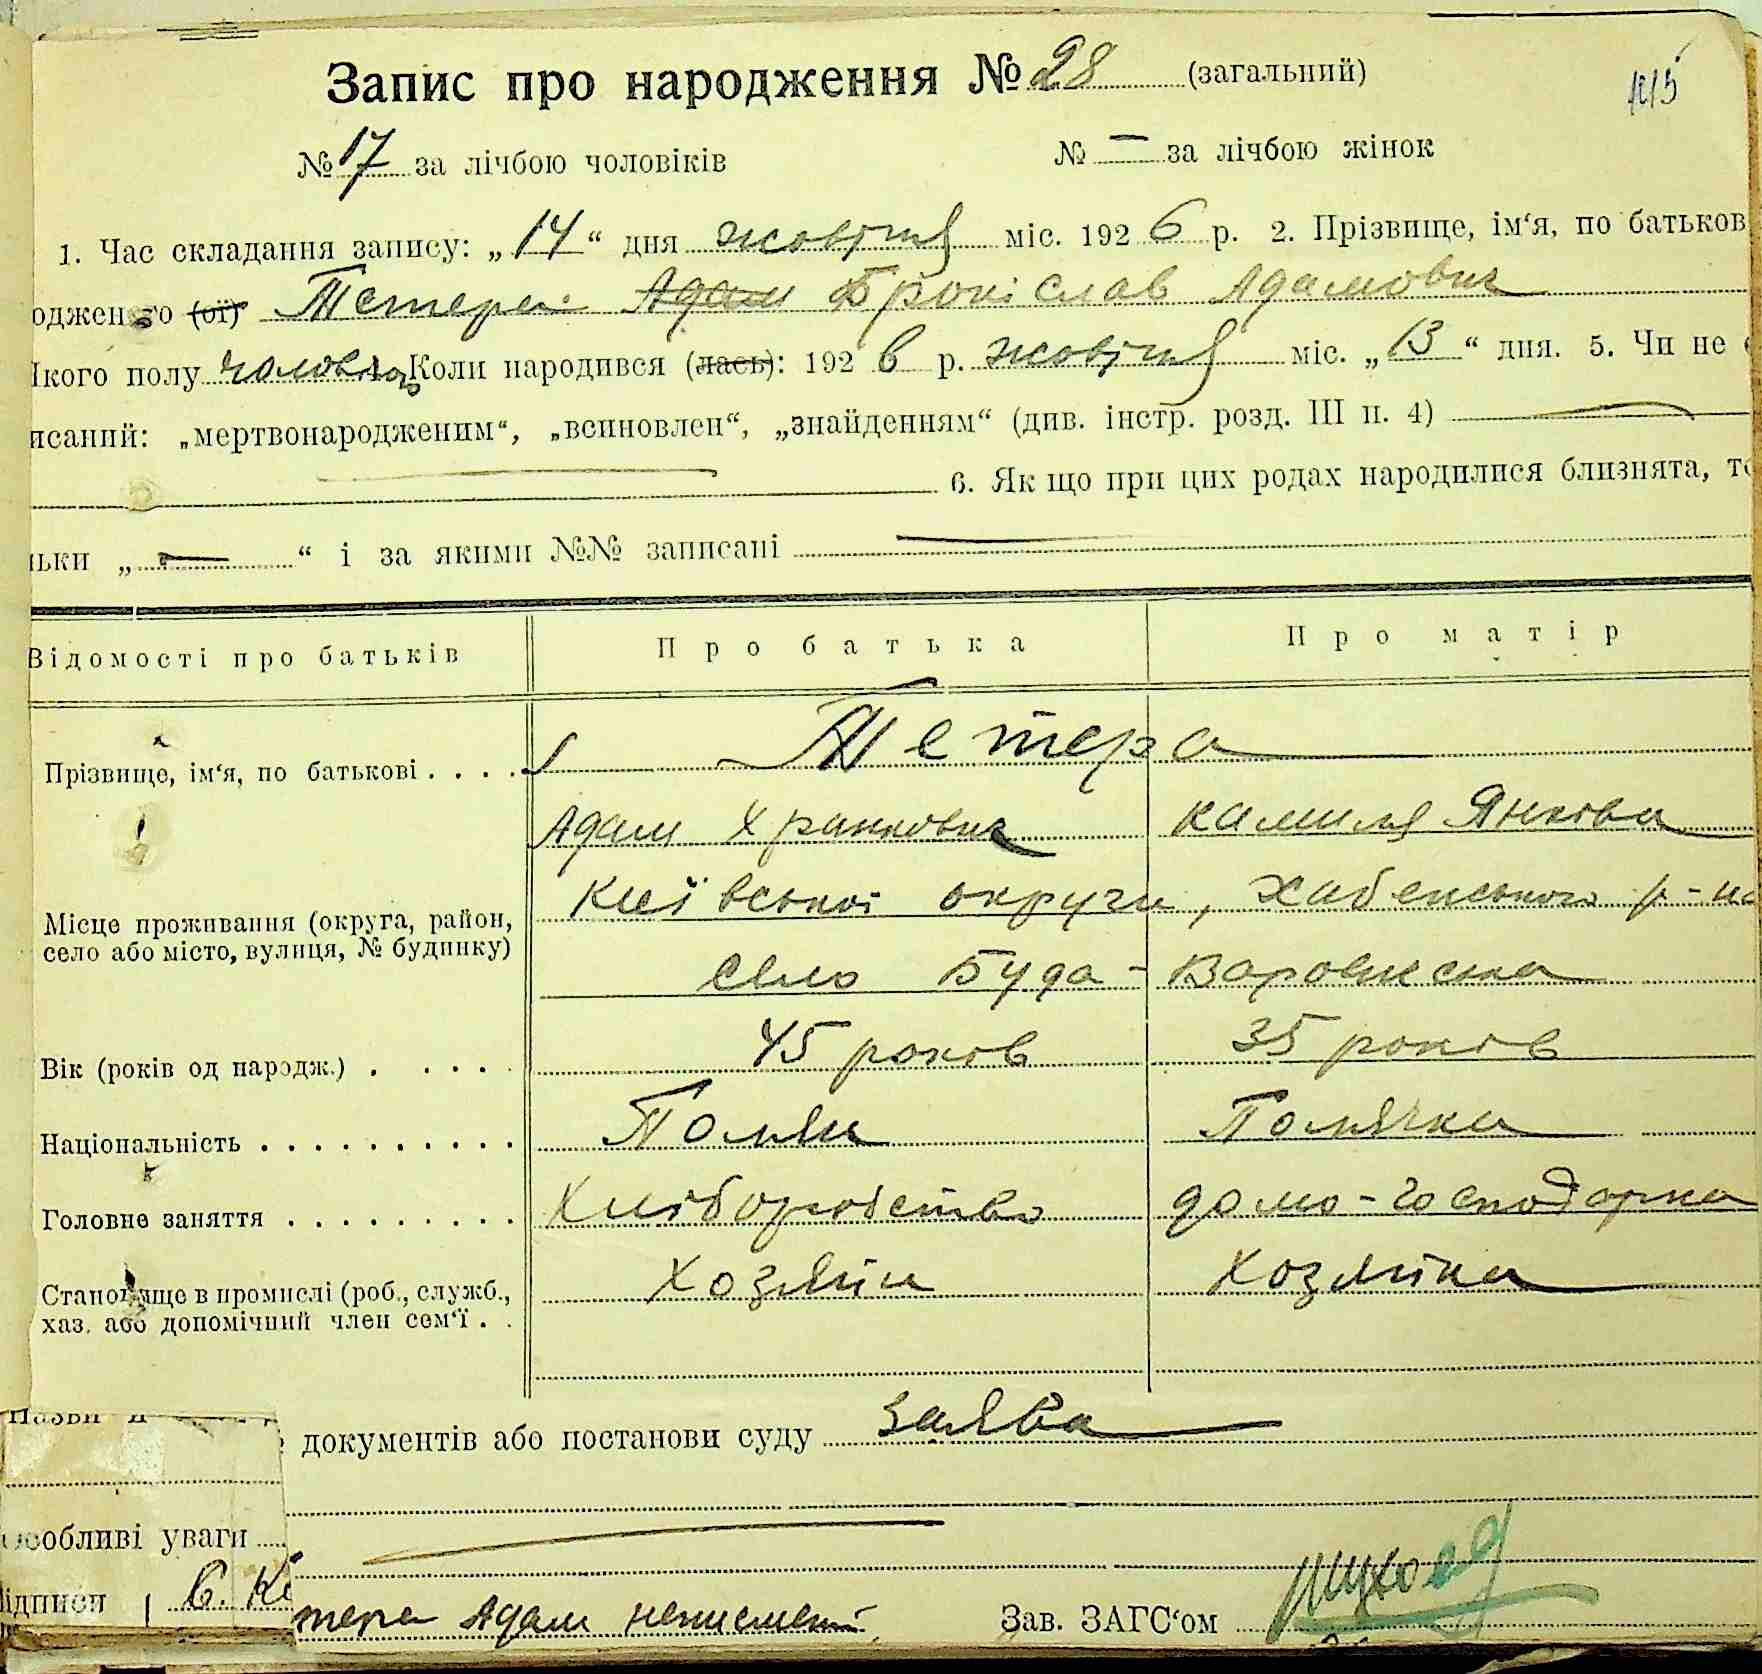 Запис про народження № 28 (загальний)
№ 17 за лічбою чоловіків № — за лічбою жінок
1. Час складання запису: „14“ дня жовтня міс. 1926 р. 2. Прізвище, ім'я, по батьков
одженого (ої) Тетера Адам Броніслав Адамович
Якого полу чоловіч Коли народився (лась): 1926 р. жовтня міс. „13“ дня. 5. Чи не
исаний: „мертвонародженим“, „всиновлен“, „знайденням“ (див. інстр. розд. III п. 4)
6. Як що при цих родах народилися близнята, то
льки „—“ і за якими №№ записані
Відомості про батьків Про батька Про матір
Прізвище, ім'я, по батькові . . . . Тетера
Адам Франкович Камиля Янкова
Місце проживання (округа, район, село або місто, вулиця, № будинку) Київської округи, Хабенського р-на
село Буда-Варовиска
Вік (років од народж.) . . . . . 45 років 35 років
Національність . . . . . . . . . . Поляк Полячка
Головне заняття . . . . . . . . . Хліборобство домо-господарка
Становище в промислі (роб., служб., хаз. або допомічний член сем'ї . . Хозяїн Хозяїка
документів або постанови суду заява
особливі уваги
ідписи С.
тера Адам неписьмен. Зав. ЗАГС'ом